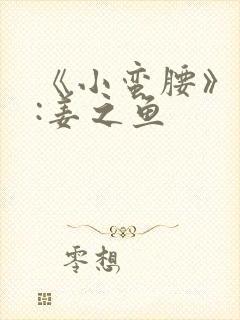 《小蛮腰》
:姜之鱼
零想